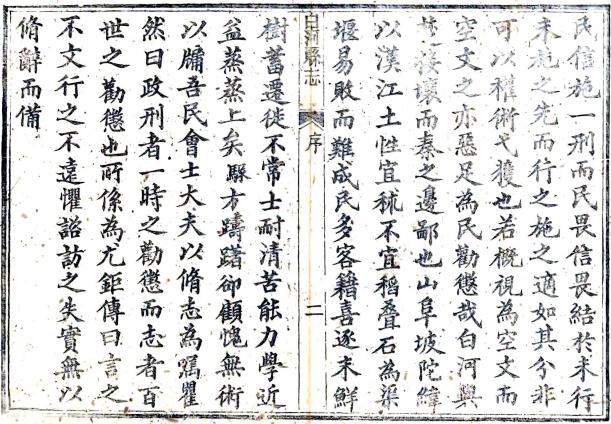 民信施一刑而民畏信畏結於未行
未札之先而行之施之適如其分非
可以權術弋獲也若概視為空文而
空文之亦惡足為民勸懲哉白河興
楚接壤而秦之邊鄙也山阜坡陀緯
以漢江土性宜秫不宜稻疊石為渠
堰易敗而難成民多客籍喜逐末鮮
白河縣志 序 二
樹蓄遷徙不常士耐清苦能力學近
益蒸蒸上矣騄方躊躇卻顧愧無術
以牖吾民會士大夫以脩志為囑瞿
然曰政刑者一時之勸懲而志者百
世之勸懲也所係為尤鉅傳曰言之
不文行之不遠懼諮訪之失實無以
脩辭而備